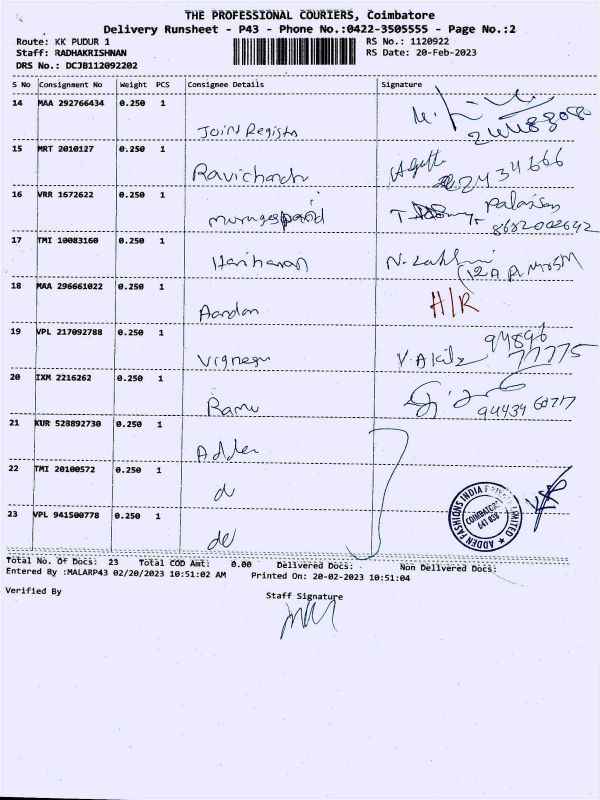 THE PROFESSIONAL COURIERS, Coimbatore
Delivery Runsheet - P43 - Phone No.:0422-3505555 - Page No.:2
Route: KK PUDUR 1
RS No.: 1120922
Staff: RADHAKRISHNAN
RS Date: 20-Feb-2023
DRS No.: DCJB112092202
S No Consignment No Weight PCS Consignee Details Signature
14 MAA 292766434 0.250 1
Joint Registr
15 MRT 2010127 0.250 1
Ravichandr
2434666
16 VRR 1672622 0.250 1
17 TMI 10083160 0.250 1
Hariharan N. Lakhmi
18 MAA 296661022 0.250 1
Aardon H/R
19 VPL 217092788 0.250 1
94896
Vignesh V. Akila 77775
20 IXM 2216262 0.250 1
Ramu 94434 60717
21 KUR 528892730 0.250 1
Adder
22 TMI 20100572 0.250 1
do
23 VPL 941500778 0.250 1
do
ADDEN FASHIONS INDIA PRIVATE LIMITED
COIMBATORE
641 038
Total No. Of Docs: 23 Total COD Amt: 0.00 Delivered Docs: Non Delivered Docs:
Entered By :MALARP43 02/20/2023 10:51:02 AM Printed On: 20-02-2023 10:51:04
Verified By
Staff Signature